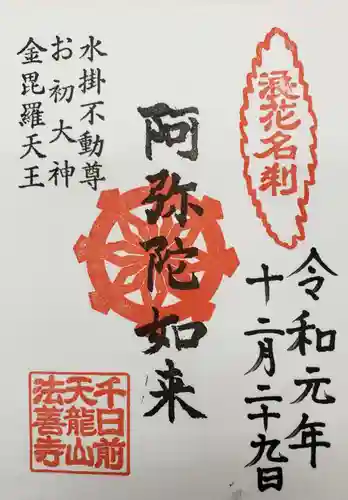 浪花名刹
令和元年
十二月二十九日
阿弥陀如来
水掛不動尊
お初大神
金毘羅天王
千日前
天龍山
法善寺